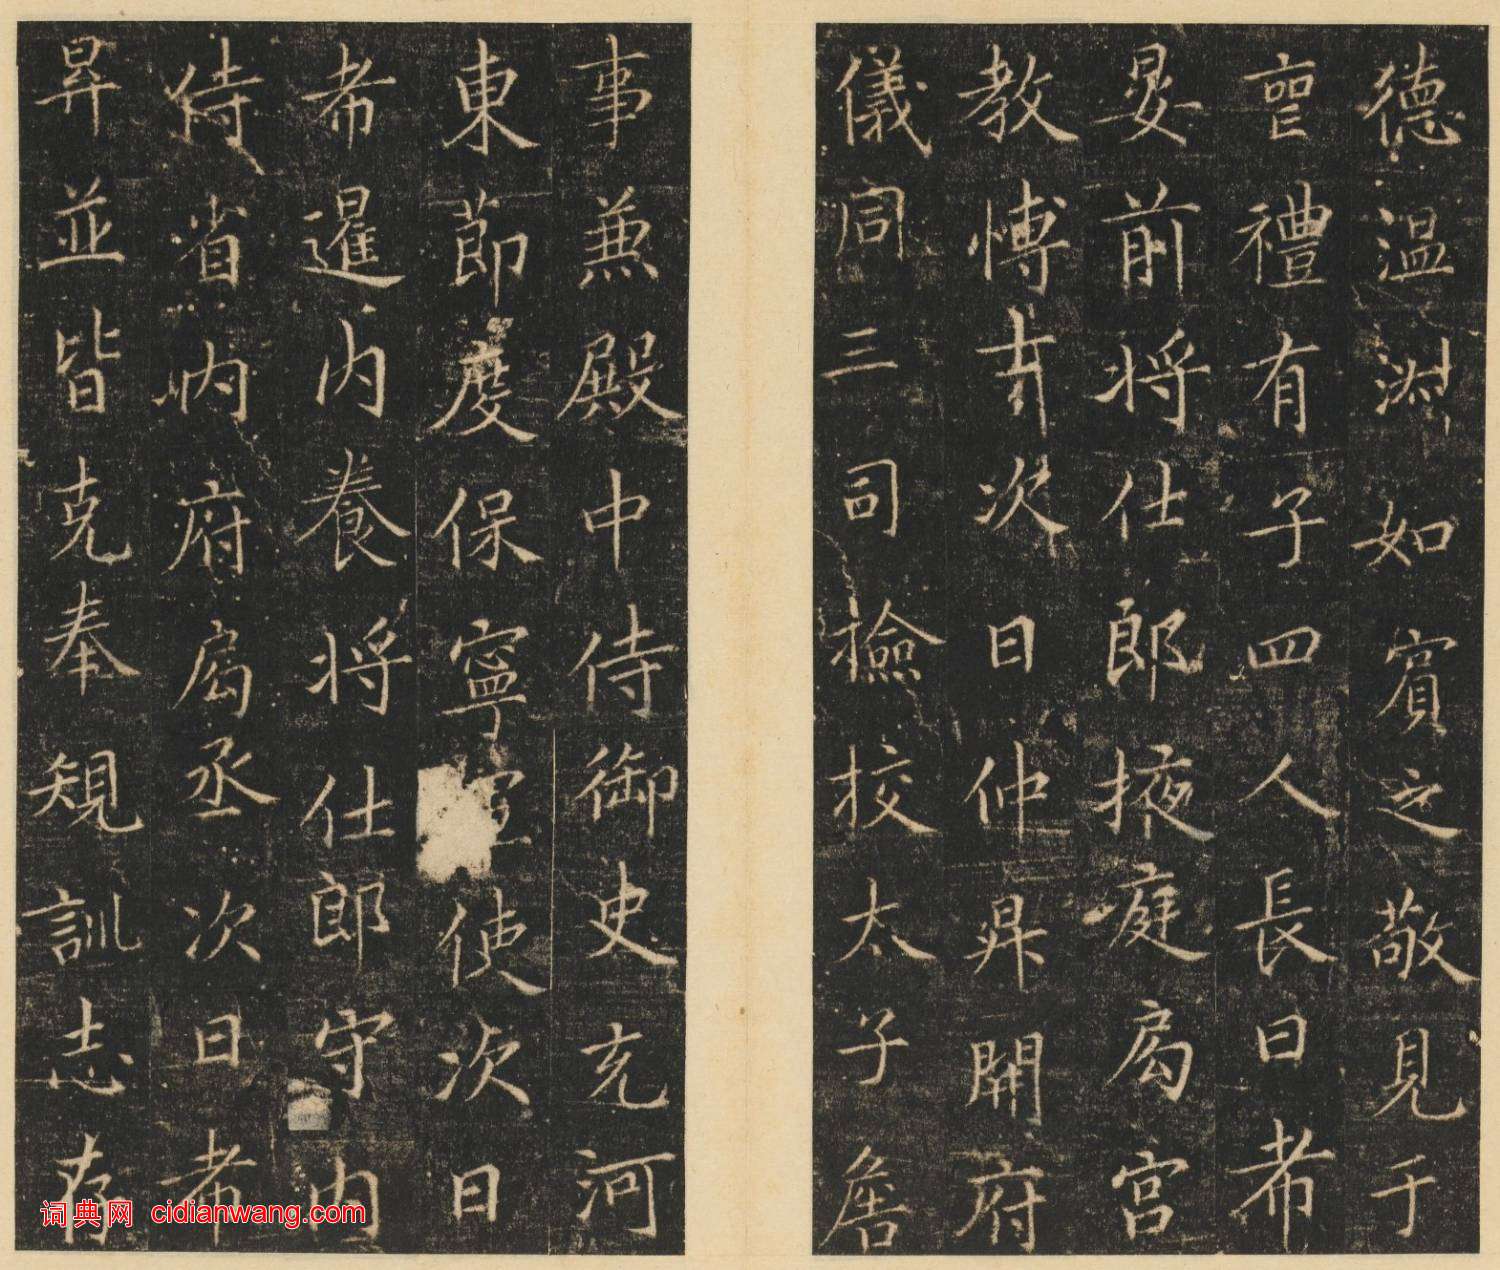 德溫淵如賓之敬見于
亶禮有子四人長曰希
晏前將仕郎掖庭局宮
教博士次曰仲昇開府
儀同三司撿挍太子詹
事兼殿中侍御史充河
東節度保寧軍使次曰
希暹內養將仕郎守內
侍省內府局丞次曰希
昇並皆克奉規訓志存
词典网 cidianwang.com